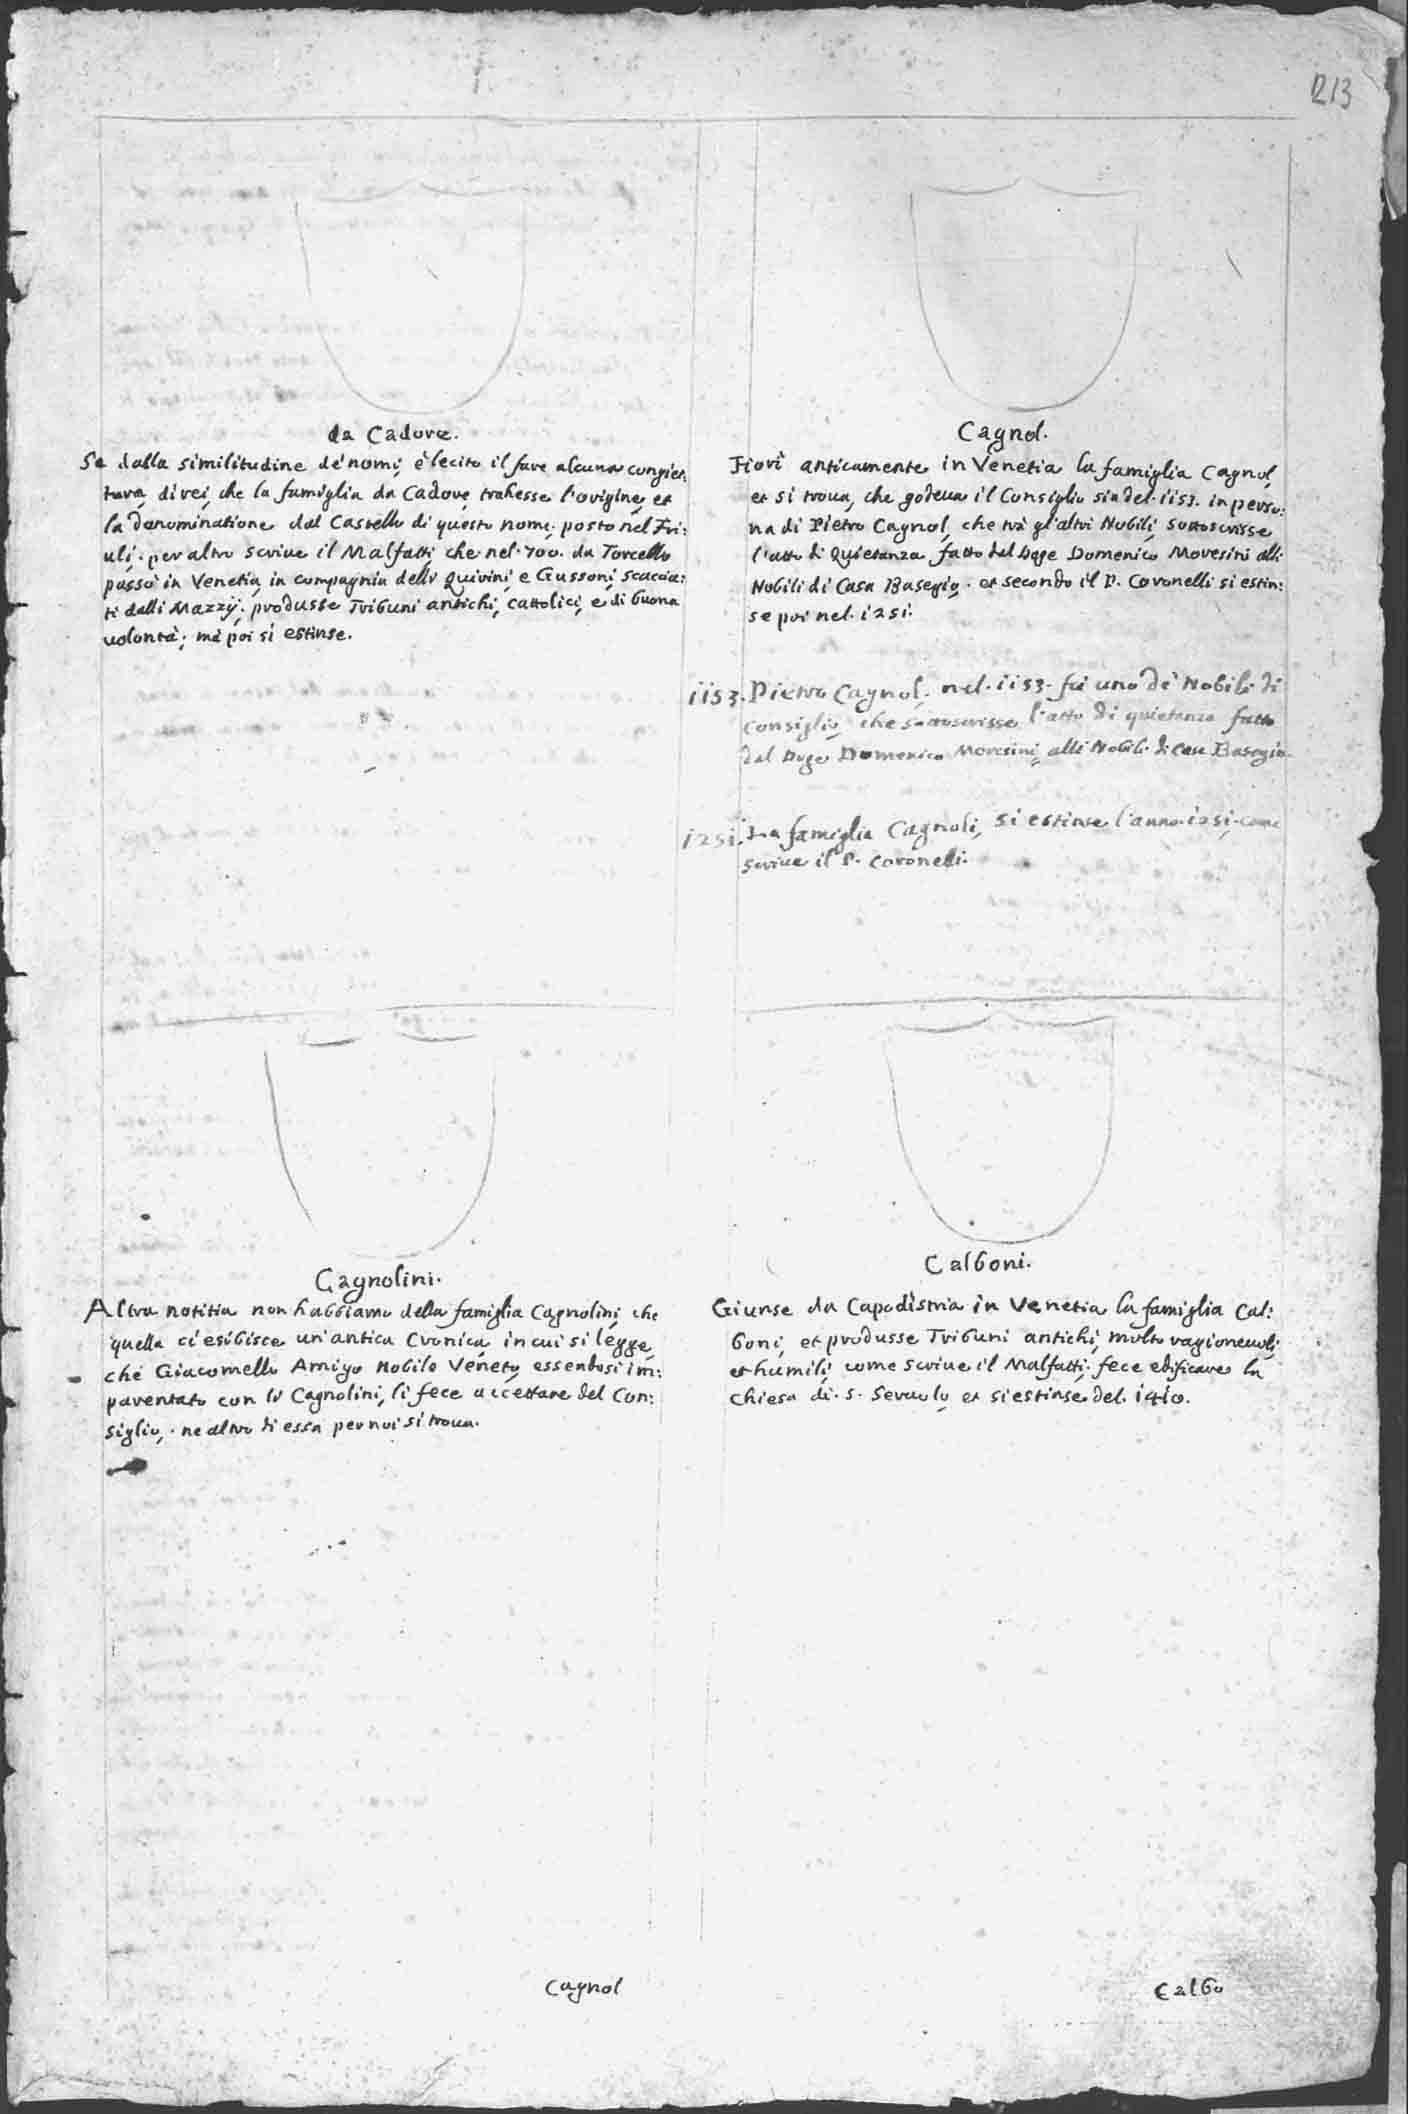 213
da Cadore.
Se dalla similitudine de' nomi, è lecito il fare alcuna congiet:
tura, direi, che la famiglia da Cadore, trahesse l'origine, et
la denominatione dal Castello di questo nome posto nel Fri:
uli. per altro scrive il Malfatti che nel. 700. da Torcello
passò in Venetia, in compagnia delli Quirini, e Gussoni, scaccia:
ti dalli Mazzij. produsse Tribuni antichi, cattolici, e di buona
volontà; mà poi si estinse.
Cagnol.
Fiorì anticamente in Venetia la famiglia Cagnol,
et si trova, che godeva il Consiglio sin del. 1153. in perso:
na di Pietro Cagnol, che trà gl'altri Nobili, sottoscrisse
l'atto di Quietanza, fatto dal Doge Domenico Moresini alli
Nobili di Casa Basegio. et secondo il P. Coronelli si estin:
se poi nel. 1251.
1153. Pietro Cagnol, nel. 1153. fù uno de' Nobili di
Consiglio, che sottoscrisse l'atto di quietanza fatto
dal Doge Domenico Moresini, alli Nobili di Casa Basegio.
1251. La famiglia Cagnoli, si estinse l'anno 1251. come
scrive il P. Coronelli.
Cagnolini.
Altra notitia non habbiamo della famiglia Cagnolini, che
quella ci esibisce un'antica Cronica, in cui si legge,
che Giacomello Arrigo Nobile Veneto, essendosi im:
parentato con li Cagnolini, li fece accettare del Con:
siglio. ne altro di essa per noi si trova.
Calboni.
Giunse da Capodistria in Venetia la famiglia Cal:
boni, et produsse Tribuni antichi, molto ragionevoli,
et humili, come scrive il Malfatti. fece edificare la
Chiesa di. S. Servolo, et si estinse del. 1410.
Cagnol
Calbo